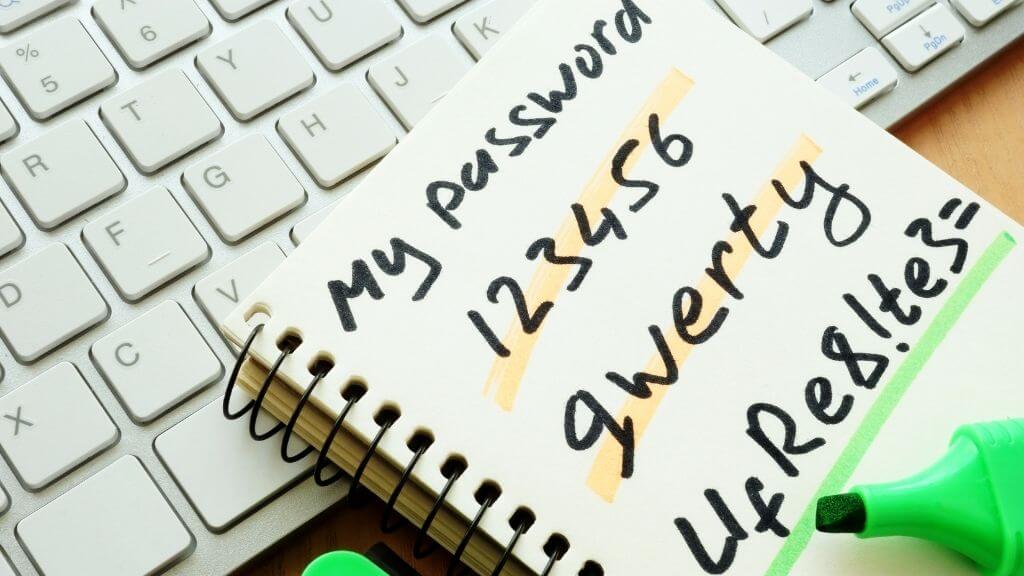 My password
123456
qwerty
UfRe8!te3=
^
6
%
5
Y
U
T
J
K
R
H
G
F
D
V
C
X
/
PgUp
PgDn
Home